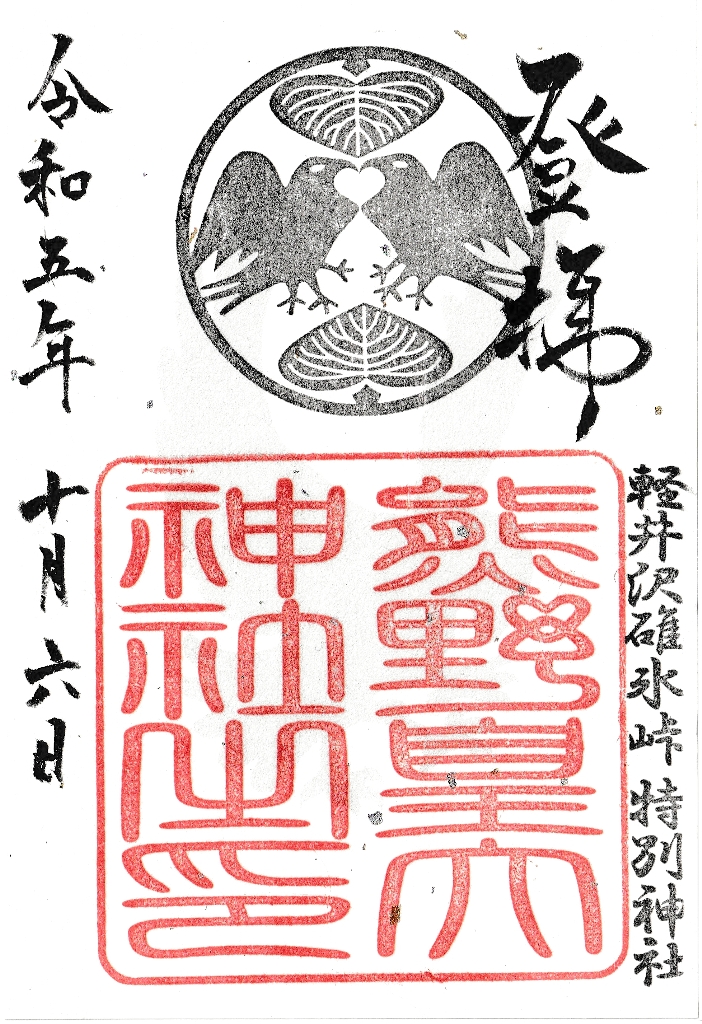 登拝
軽井沢碓氷峠 特別神社
熊野皇大
神社之印
令和五年 十月六日